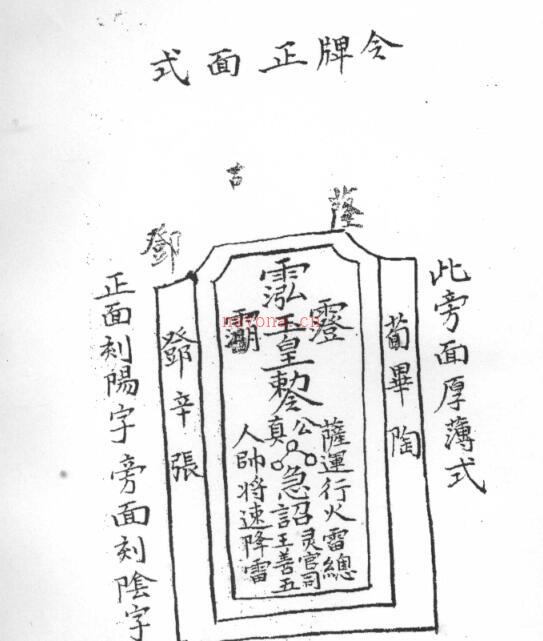 令牌正面式
此旁面厚薄式
苟畢陶
薩
吉
鄧
玉皇勅令
薩運行火雷總
公
急詔靈官司
急詔王善五
真
人帥將速降雷
鄧辛張
正面刻陽字旁面刻陰字
nayona.cn